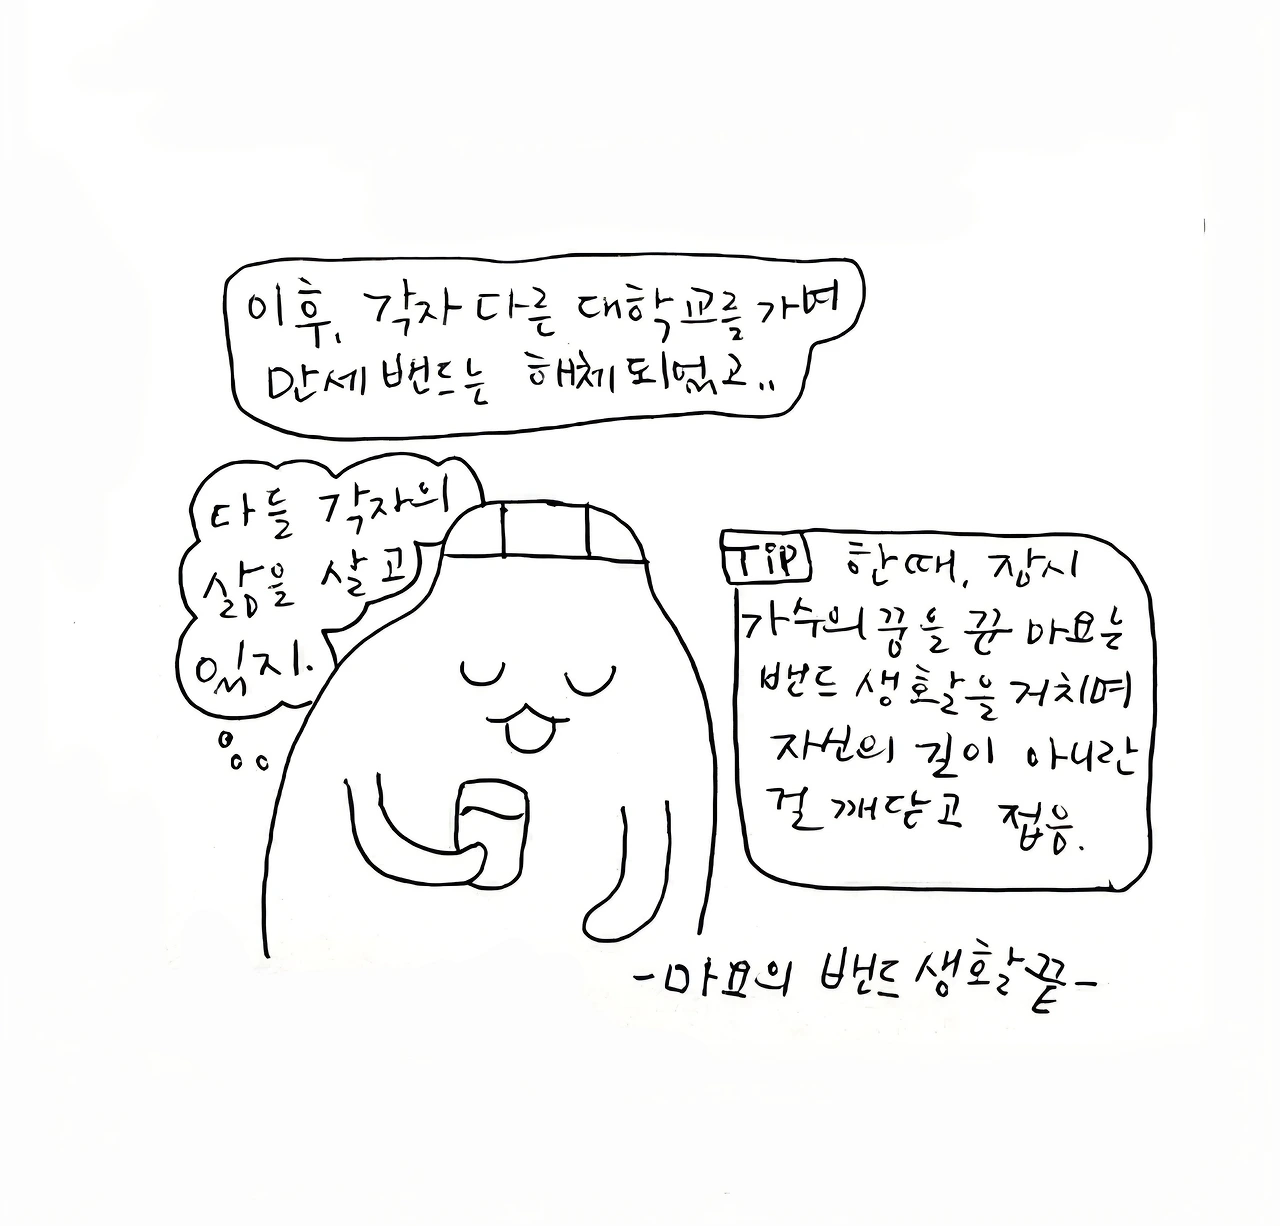 이후, 각자 다른 대학교를 가며
만세 밴드는 해체되었고..
다들 각자의
삶을 살고
있지.
TiP 한때, 잠시
가수의 꿈을 꾼 마요는
밴드 생활을 거치며
자신의 길이 아니란
걸 깨닫고 접음.
-마요의 밴드 생활 끝-